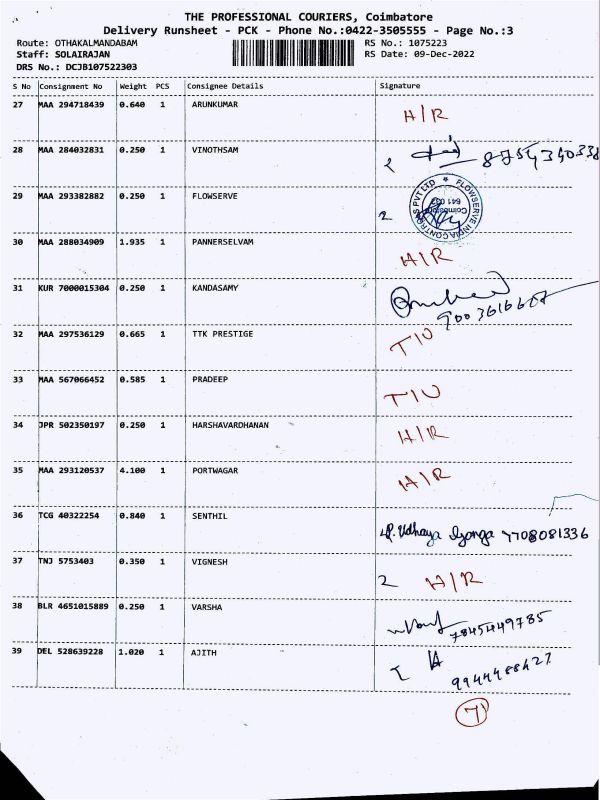 THE PROFESSIONAL COURIERS, Coimbatore
Delivery Runsheet - PCK - Phone No.:0422-3505555 - Page No.:3
Route: OTHAKALMANDABAM RS No.: 1075223
Staff: SOLAIRAJAN RS Date: 09-Dec-2022
DRS No.: DCJB107522303
S No Consignment No Weight PCS Consignee Details Signature
27 MAA 294718439 0.640 1 ARUNKUMAR H/R
28 MAA 284032831 0.250 1 VINOTHSAM 8754340338
29 MAA 293382882 0.250 1 FLOWSERVE 2 FLOWSERVE INDIA CONTROLS PVT LTD Coimbatore
30 MAA 288034909 1.935 1 PANNERSELVAM H/R
31 KUR 7000015304 0.250 1 KANDASAMY
32 MAA 297536129 0.665 1 TTK PRESTIGE T/U
33 MAA 567066452 0.585 1 PRADEEP T/U
34 JPR 502350197 0.250 1 HARSHAVARDHANAN H/R
35 MAA 293120537 4.100 1 PORTWAGAR H/R
36 TCG 40322254 0.840 1 SENTHIL Udhaya 7708081336
37 TNJ 5753403 0.350 1 VIGNESH 2 H/R
38 BLR 4651015889 0.250 1 VARSHA 7845449785
39 DEL 528639228 1.020 1 AJITH 9944488427
7